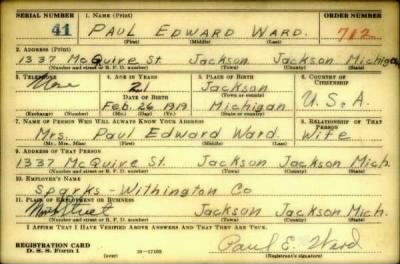 SERIAL NUMBER 1. NAME (Print) ORDER NUMBER
41 PAUL EDWARD WARD. 712
(First) (Middle) (Last)
2. ADDRESS (Print)
1337 McGuire St. Jackson Jackson Michigan
(Number and street or R. F. D. number) (Town) (County) (State)
3. TELEPHONE 4. AGE IN YEARS 5. PLACE OF BIRTH 6. COUNTRY OF CITIZENSHIP
None 21 Jackson
DATE OF BIRTH (Town or county)
Feb. 26 1919 Michigan U.S.A.
(Exchange) (Number) (Mo.) (Day) (Yr.) (State or country)
7. NAME OF PERSON WHO WILL ALWAYS KNOW YOUR ADDRESS 8. RELATIONSHIP OF THAT PERSON
Mrs. Paul Edward Ward. Wife
(Mr., Mrs., Miss) (First) (Middle) (Last)
9. ADDRESS OF THAT PERSON
1337 McGuire St. Jackson Jackson Mich.
(Number and street or R. F. D. number) (Town) (County) (State)
10. EMPLOYER'S NAME
Sparks-Withington Co
11. PLACE OF EMPLOYMENT OR BUSINESS
Street Jackson Jackson Mich.
(Number and street or R. F. D. number) (Town) (County) (State)
I AFFIRM THAT I HAVE VERIFIED ABOVE ANSWERS AND THAT THEY ARE TRUE.
REGISTRATION CARD Paul E. Ward
D. S. S. Form 1 (over) 16-17105 (Registrant's signature)